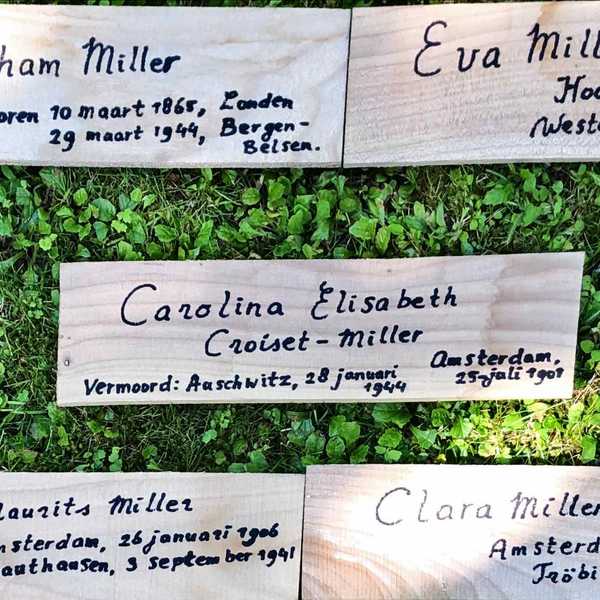 ham Miller
oren 10 maart 1865, Londen
29 maart 1944, Bergen-
Belsen.
Eva Mill
Hoo
Weste
Carolina Elisabeth
Croiset-Miller
Vermoord: Auschwitz, 28 januari
1944
Amsterdam,
25-juli 1901
aurits Miller
msterdam, 26 januari 1906
authausen, 3 september 1941
Clara Miller
Amsterda
Tröbi